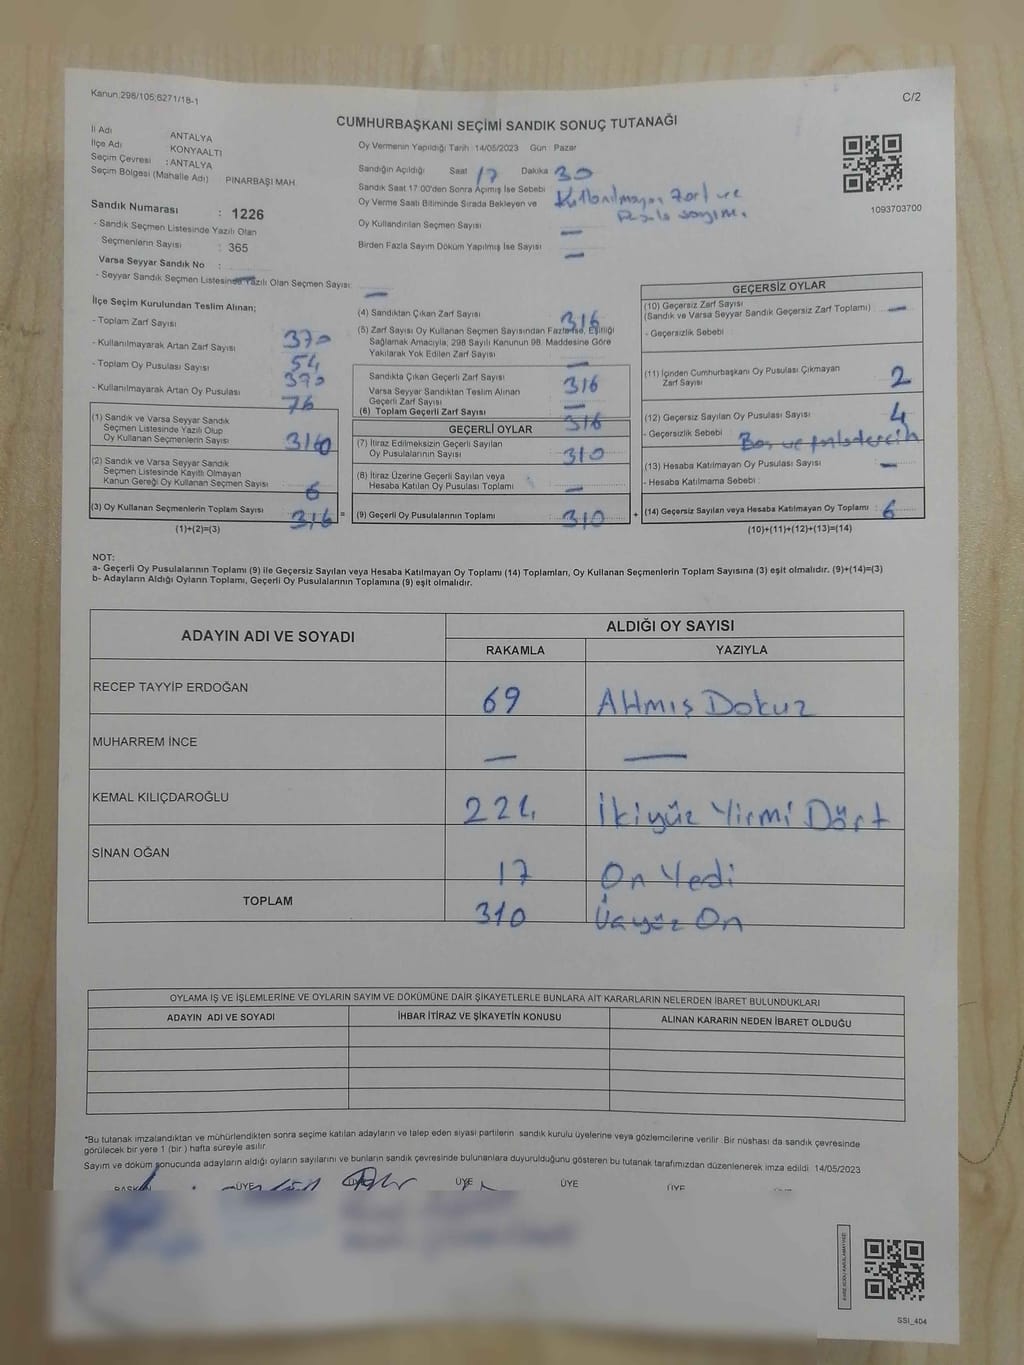 Kanun:298/105;6271/18-1
C/2
CUMHURBAŞKANI SEÇİMİ SANDIK SONUÇ TUTANAĞI
İl Adı ANTALYA
İlçe Adı KONYAALTI
Seçim Çevresi : ANTALYA
Seçim Bölgesi (Mahalle Adı) PINARBAŞI MAH.
Sandık Numarası : 1226
- Sandık Seçmen Listesinde Yazılı Olan
Seçmenlerin Sayısı : 365
Varsa Seyyar Sandık No :
- Seyyar Sandık Seçmen Listesinde Yazılı Olan Seçmen Sayısı: —
Oy Vermenin Yapıldığı Tarih :14/05/2023 Gün Pazar
Sandığın Açıldığı Saat 17 Dakika 30
Sandık Saat 17:00'den Sonra Açılmış İse Sebebi Kullanılmayan Zarf ve
Oy Verme Saati Bitiminde Sırada Bekleyen ve Pusula sayımı
Oy Kullandırılan Seçmen Sayısı —
Birden Fazla Sayım Döküm Yapılmış İse Sayısı —
1093703700
İlçe Seçim Kurulundan Teslim Alınan;
- Toplam Zarf Sayısı 370
- Kullanılmayarak Artan Zarf Sayısı 54
- Toplam Oy Pusulası Sayısı 370
- Kullanılmayarak Artan Oy Pusulası 76
(1) Sandık ve Varsa Seyyar Sandık
Seçmen Listesinde Yazılı Olup
Oy Kullanan Seçmenlerin Sayısı
(2) Sandık ve Varsa Seyyar Sandık
Seçmen Listesinde Kayıtlı Olmayan
Kanun Gereği Oy Kullanan Seçmen Sayısı 6
(3) Oy Kullanan Seçmenlerin Toplam Sayısı 316 =
(1)+(2)=(3)
(4) Sandıktan Çıkan Zarf Sayısı 316
(5) Zarf Sayısı Oy Kullanan Seçmen Sayısından Fazla İse, Eşitliği
Sağlamak Amacıyla, 298 Sayılı Kanunun 98. Maddesine Göre
Yakılarak Yok Edilen Zarf Sayısı —
Sandıkta Çıkan Geçerli Zarf Sayısı 316
Varsa Seyyar Sandıktan Teslim Alınan
Geçerli Zarf Sayısı —
(6) Toplam Geçerli Zarf Sayısı 316
GEÇERLİ OYLAR
(7) İtiraz Edilmeksizin Geçerli Sayılan
Oy Pusulalarının Sayısı 310
(8) İtiraz Üzerine Geçerli Sayılan veya
Hesaba Katılan Oy Pusulası Toplamı —
(9) Geçerli Oy Pusulalarının Toplamı 310 +
GEÇERSİZ OYLAR
(10) Geçersiz Zarf Sayısı
(Sandık ve Varsa Seyyar Sandık Geçersiz Zarf Toplamı) —
- Geçersizlik Sebebi
(11) İçinden Cumhurbaşkanı Oy Pusulası Çıkmayan
Zarf Sayısı 2
(12) Geçersiz Sayılan Oy Pusulası Sayısı 4
- Geçersizlik Sebebi Boş ve
(13) Hesaba Katılmayan Oy Pusulası Sayısı —
- Hesaba Katılmama Sebebi :
(14) Geçersiz Sayılan veya Hesaba Katılmayan Oy Toplamı : 6
(10)+(11)+(12)+(13)=(14)
NOT:
a- Geçerli Oy Pusulalarının Toplamı (9) ile Geçersiz Sayılan veya Hesaba Katılmayan Oy Toplamı (14) Toplamları, Oy Kullanan Seçmenlerin Toplam Sayısına (3) eşit olmalıdır. (9)+(14)=(3)
b- Adayların Aldığı Oyların Toplamı, Geçerli Oy Pusulalarının Toplamına (9) eşit olmalıdır.
ADAYIN ADI VE SOYADI
ALDIĞI OY SAYISI
RAKAMLA YAZIYLA
RECEP TAYYİP ERDOĞAN 69 Altmış Dokuz
MUHARREM İNCE — —
KEMAL KILIÇDAROĞLU 224 İkiyüz Yirmi Dört
SİNAN OĞAN 17 On Yedi
TOPLAM 310 Üçyüz On
OYLAMA İŞ VE İŞLEMLERİNE VE OYLARIN SAYIM VE DÖKÜMÜNE DAİR ŞİKAYETLERLE BUNLARA AİT KARARLARIN NELERDEN İBARET BULUNDUKLARI
ADAYIN ADI VE SOYADI İHBAR İTİRAZ VE ŞİKAYETİN KONUSU ALINAN KARARIN NEDEN İBARET OLDUĞU
*Bu tutanak imzalandıktan ve mühürlendikten sonra seçime katılan adayların ve talep eden siyasi partilerin sandık kurulu üyelerine veya gözlemcilerine verilir. Bir nüshası da sandık çevresinde
görülecek bir yere 1 (bir) hafta süreyle asılır.
Sayım ve döküm sonucunda adayların aldığı oyların sayılarını ve bunların sandık çevresinde bulunanlara duyurulduğunu gösteren bu tutanak tarafımızdan düzenlenerek imza edildi. 14/05/2023
BAŞKAN ÜYE ÜYE ÜYE ÜYE ÜYE
SSI_404